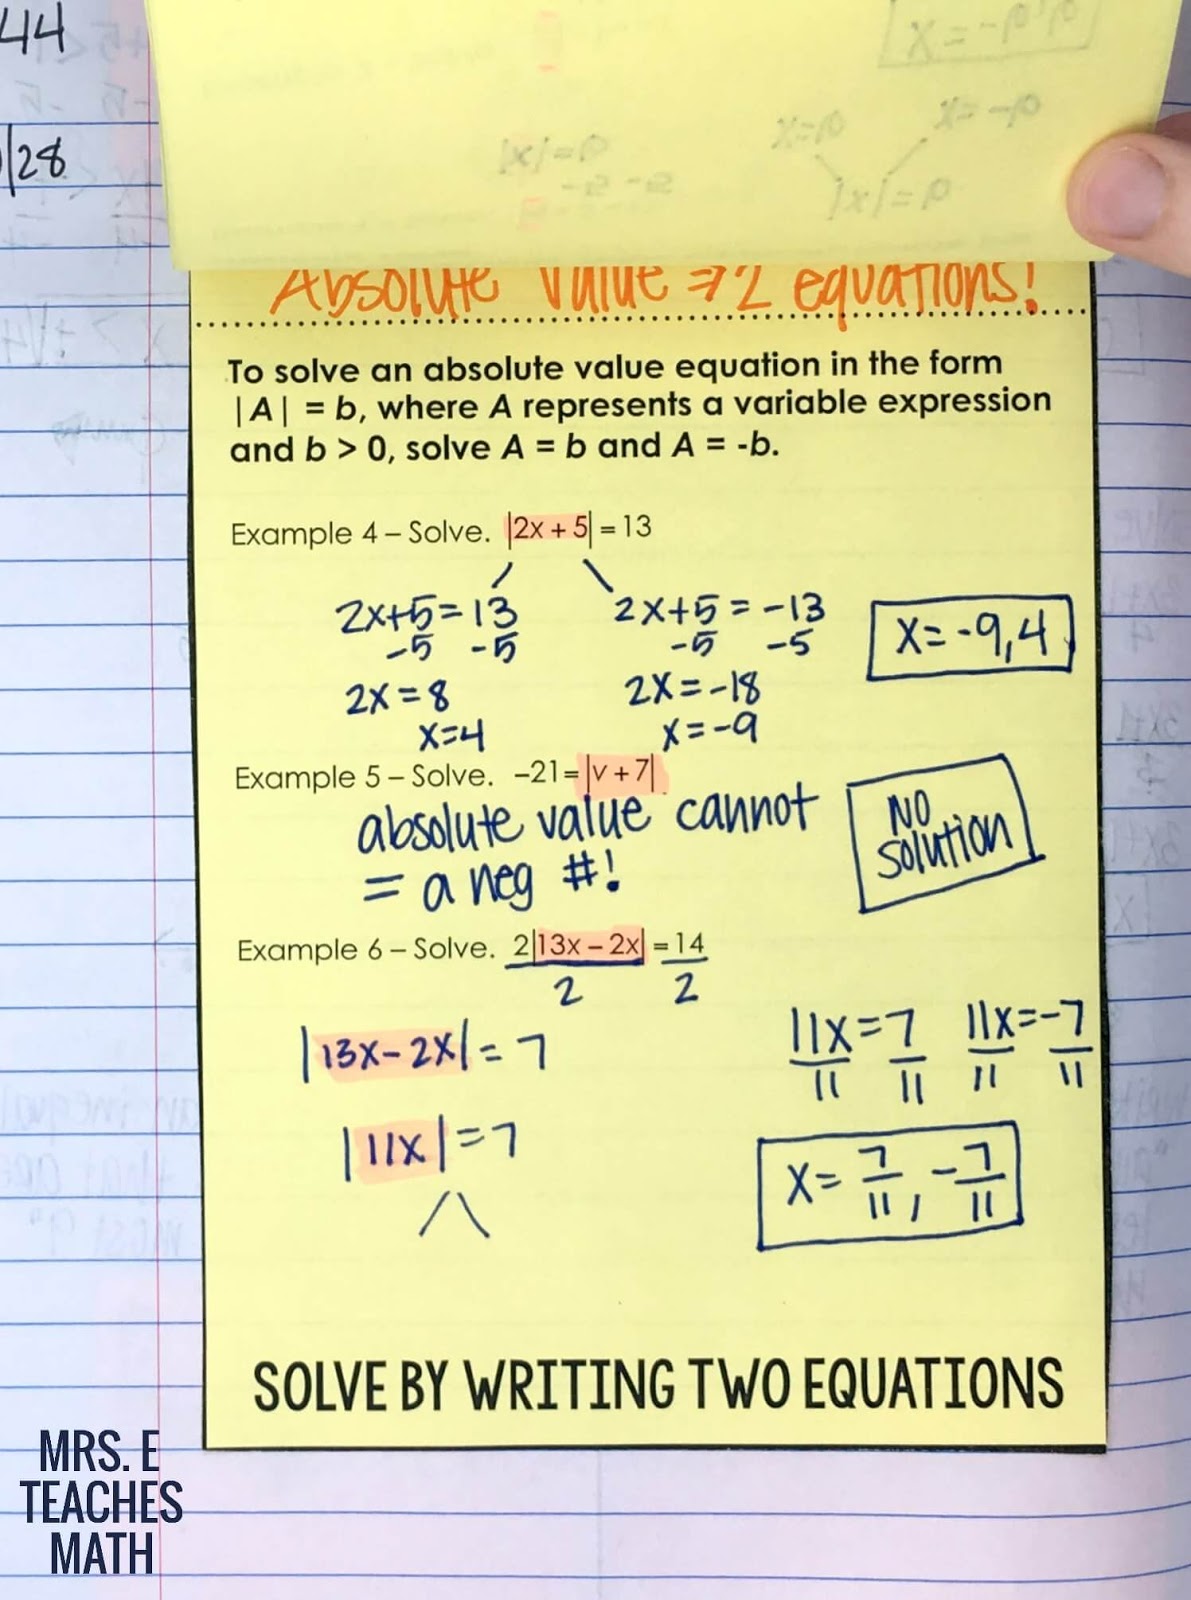 44
28
Absolute Value => 2 equations!
To solve an absolute value equation in the form
|A| = b, where A represents a variable expression
and b > 0, solve A = b and A = -b.
Example 4 – Solve. |2x + 5| = 13
2x+5=13 2x+5=-13
-5 -5 -5 -5
2x=8 2x=-18
x=4 x=-9
x=-9,4
Example 5 – Solve. –21=|v + 7|
absolute value cannot
= a neg #!
NO
solution
Example 6 – Solve. 2|13x – 2x| = 14
2 2
|13x-2x|=7
|11x|=7
11x=7 11x=-7
11 11 11 11
x= 7/11, -7/11
SOLVE BY WRITING TWO EQUATIONS
MRS. E
TEACHES
MATH